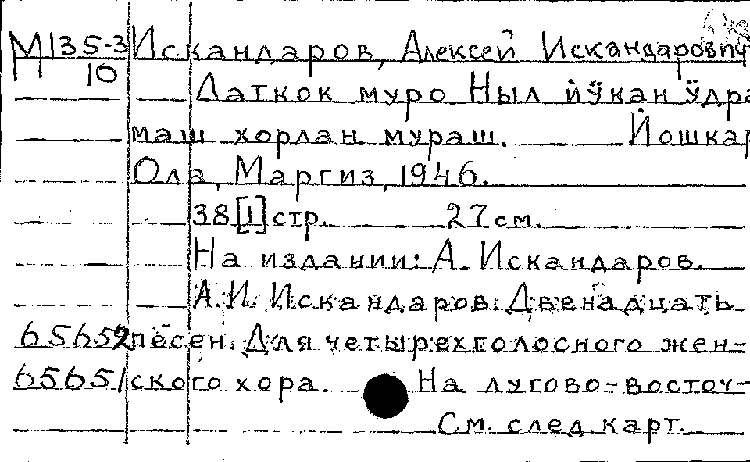 М135-3 Искандаров, Алексей Искандарович
10 Латкок муро Ныл йӱкан ӱдра
маш хорлан мураш. Йошкар
Ола, Маргиз, 1946.
38 [1] стр. 27 см.
На издании: А. Искандаров.
А.И. Искандаров. Двенадцать
65652 песен. Для четырехголосного жен-
65651 ского хора. На лугово-восточ-
См. след. карт.